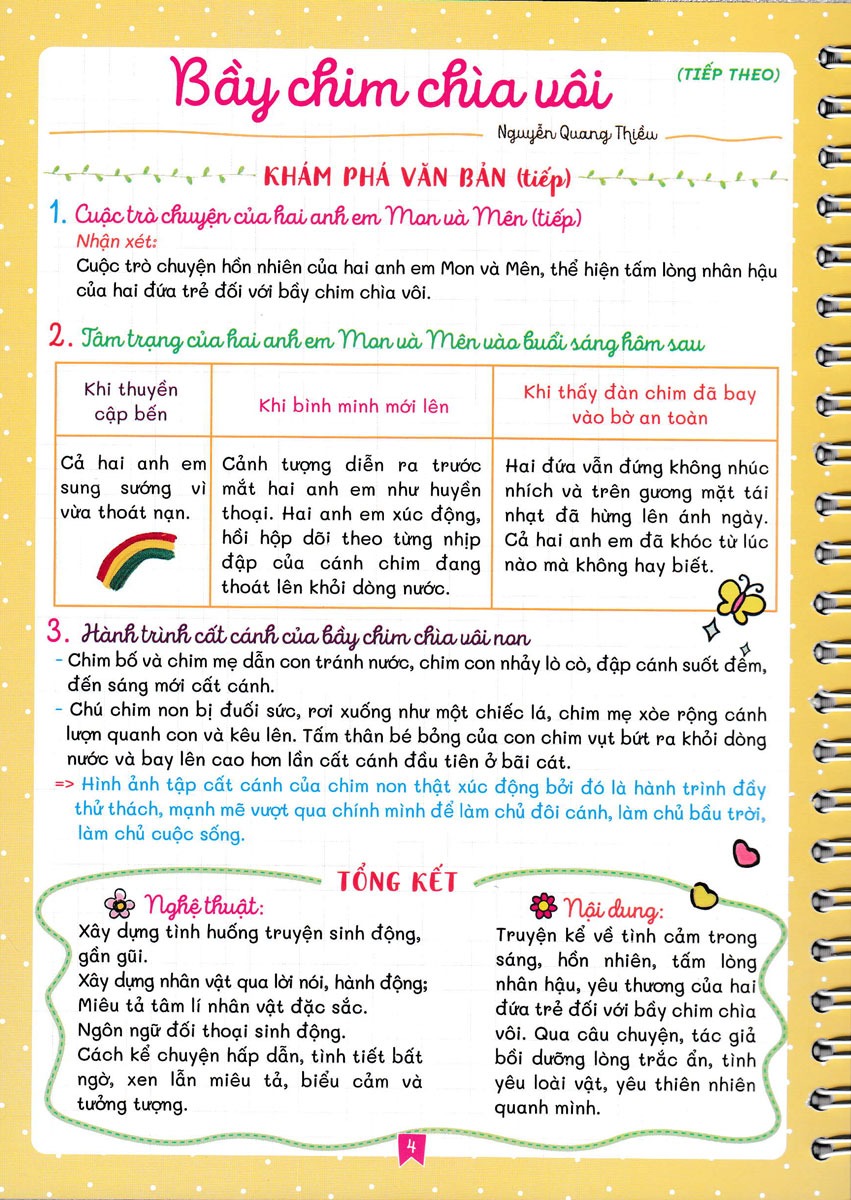 Bầy chim chìa vôi
(TIẾP THEO)
Nguyễn Quang Thiều
KHÁM PHÁ VĂN BẢN (tiếp)
1. Cuộc trò chuyện của hai anh em Mon và Mên (tiếp)
Nhận xét:
Cuộc trò chuyện hồn nhiên của hai anh em Mon và Mên, thể hiện tấm lòng nhân hậu
của hai đứa trẻ đối với bầy chim chìa vôi.
2. Tâm trạng của hai anh em Mon và Mên vào buổi sáng hôm sau
Khi thuyền
cập bến
Khi bình minh mới lên
Khi thấy đàn chim đã bay
vào bờ an toàn
Cả hai anh em
sung sướng vì
vừa thoát nạn.
Cảnh tượng diễn ra trước
mắt hai anh em như huyền
thoại. Hai anh em xúc động,
hồi hộp dõi theo từng nhịp
đập của cánh chim đang
thoát lên khỏi dòng nước.
Hai đứa vẫn đứng không nhúc
nhích và trên gương mặt tái
nhạt đã hừng lên ánh ngày.
Cả hai anh em đã khóc từ lúc
nào mà không hay biết.
3. Hành trình cất cánh của bầy chim chìa vôi non
- Chim bố và chim mẹ dẫn con tránh nước, chim con nhảy lò cò, đập cánh suốt đêm,
đến sáng mới cất cánh.
- Chú chim non bị đuối sức, rơi xuống như một chiếc lá, chim mẹ xòe rộng cánh
lượn quanh con và kêu lên. Tấm thân bé bỏng của con chim vụt bứt ra khỏi dòng
nước và bay lên cao hơn lần cất cánh đầu tiên ở bãi cát.
=> Hình ảnh tập cất cánh của chim non thật xúc động bởi đó là hành trình đầy
thử thách, mạnh mẽ vượt qua chính mình để làm chủ đôi cánh, làm chủ bầu trời,
làm chủ cuộc sống.
TỔNG KẾT
Nghệ thuật:
Xây dựng tình huống truyện sinh động,
gần gũi.
Xây dựng nhân vật qua lời nói, hành động;
Miêu tả tâm lí nhân vật đặc sắc.
Ngôn ngữ đối thoại sinh động.
Cách kể chuyện hấp dẫn, tình tiết bất
ngờ, xen lẫn miêu tả, biểu cảm và
tưởng tượng.
Nội dung:
Truyện kể về tình cảm trong
sáng, hồn nhiên, tấm lòng
nhân hậu, yêu thương của hai
đứa trẻ đối với bầy chim chìa
vôi. Qua câu chuyện, tác giả
bồi dưỡng lòng trắc ẩn, tình
yêu loài vật, yêu thiên nhiên
quanh mình.
4